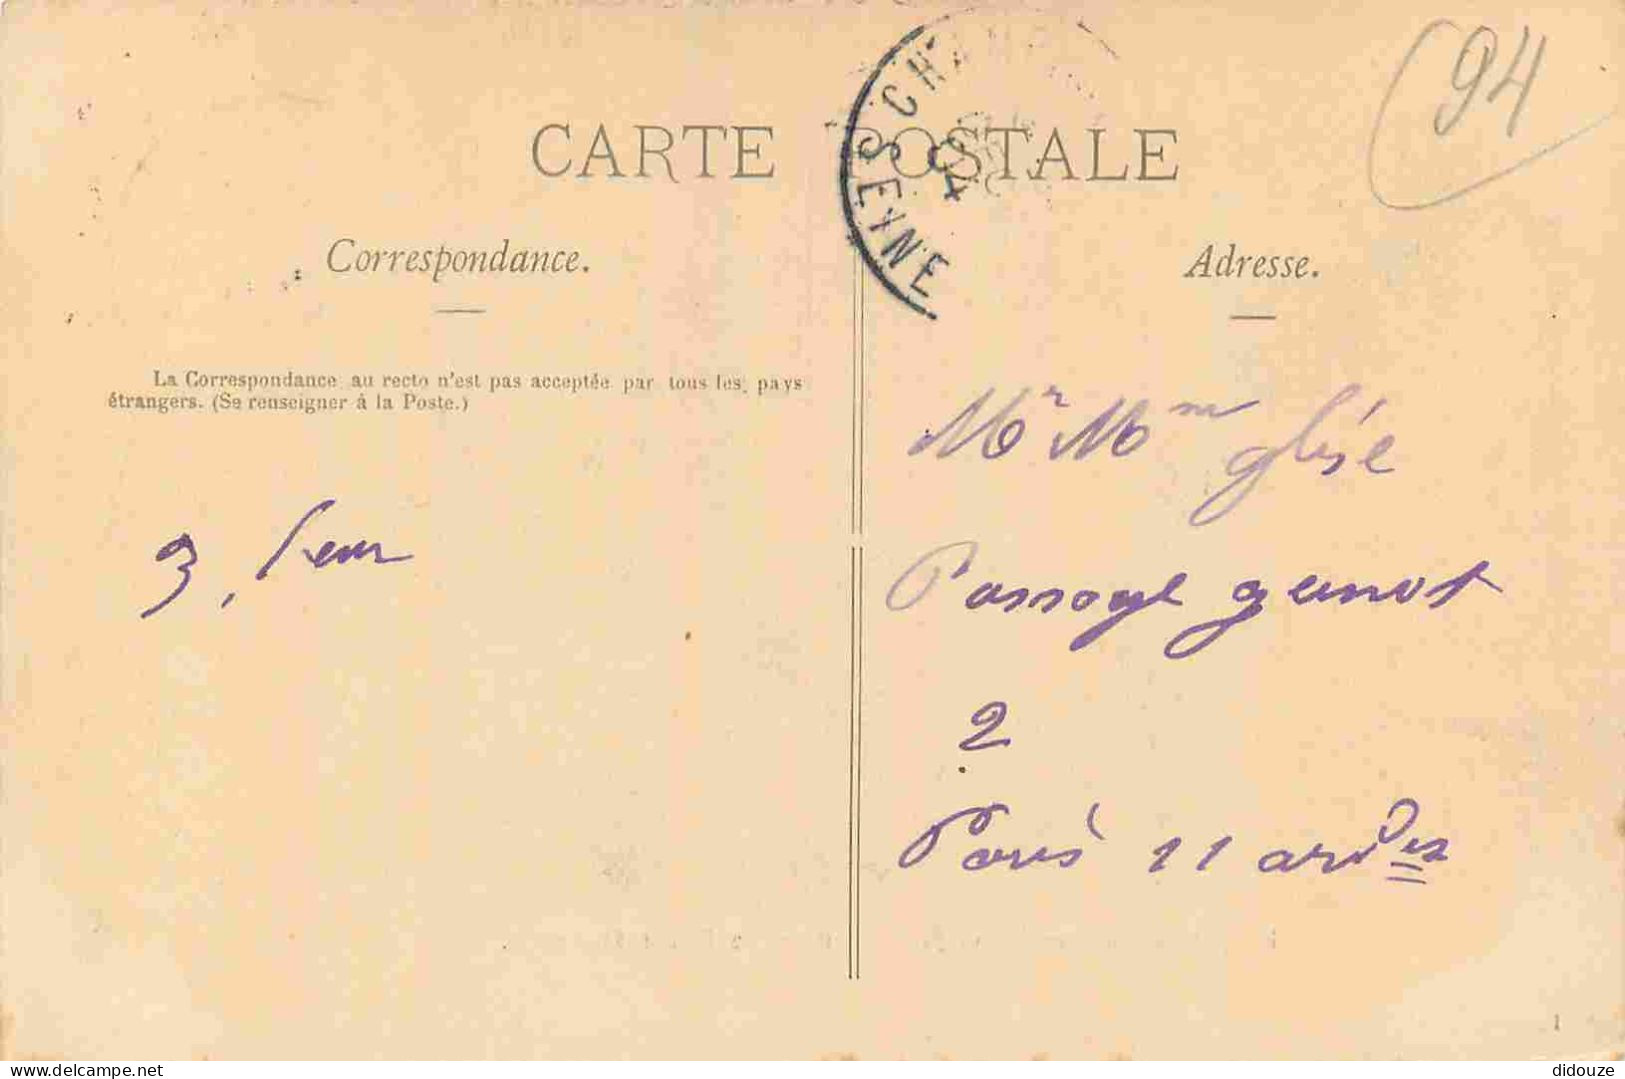 94
CARTE POSTALE
SEINE
Correspondance.
Adresse.
La Correspondance au recto n'est pas acceptée par tous les pays
étrangers. (Se renseigner à la Poste.)
Mr Mme glisé
Passage genot
3,
2
Paris 11 ardes
1
delcampe.net
didouze